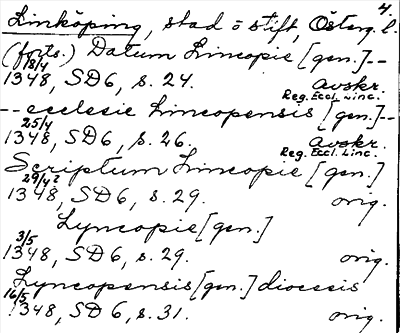 4.
Linköping, stad o stift, Österg. l.
(forts.) Datum Lincopie [gen.]--
18/4
1348, SD6, s. 24. Avskr.
Reg. Eccl. Linc.
-- ecclesie Lincopensis [gen.]--
25/4
1348, SD6, s. 26. Avskr.
Reg. Eccl. Linc.
Scriptum Lincopie [gen.]
29/4?
1348, SD6, s. 29. orig.
Lyncopie [gen.]
3/5
1348, SD6, s. 29. orig.
Lyncopensis [gen.] diocesis
16/5
1348, SD6, s. 31. orig.